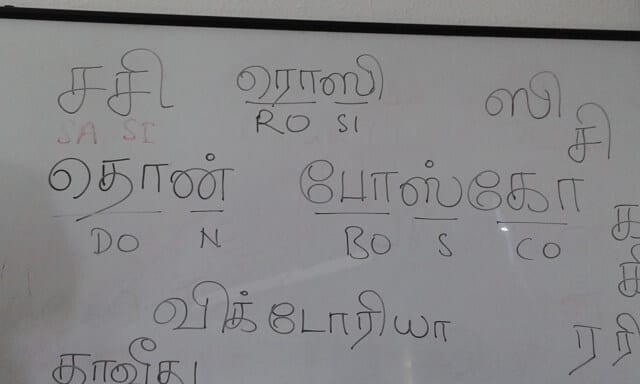 சசி ரொஸி ஸி
SA SI RO SI சி
தொண் போஸ்கோ
DO N BO S CO
விக்டோரியா
ரரி